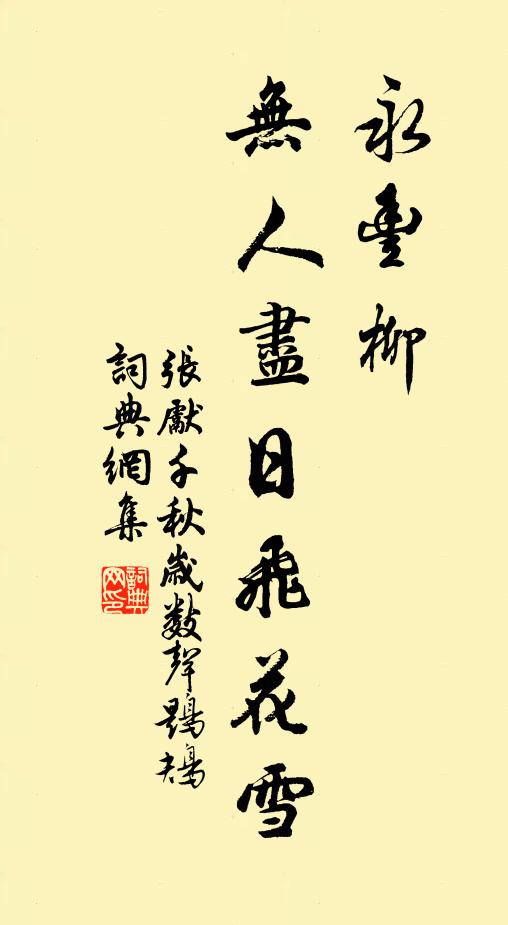 永豐柳
無人盡日飛花雪
張獻千秋歲數聲鶗鴂
詞典網集
詞典
网印